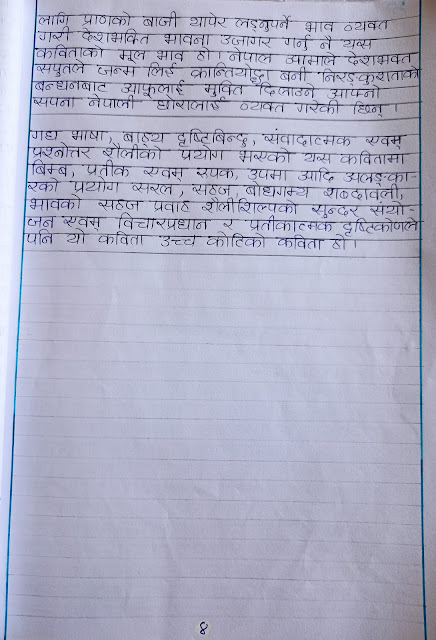 लागि प्राणको बाजी थापेर लड्नुपर्ने भाव व्यक्त
गरी देशभक्ति भावना उजागर गर्नु नै यस
कविताको मूल भाव हो । नेपाल आमाले देशभक्त
सपुतले जन्म लिई क्रान्तियोद्धा बनी निरङ्कुशताको
बन्धनबाट आफूलाई मुक्ति दिलाउने आफ्नो
सपना नेपाली छोरालाई व्यक्त गरेकी छिन् ।
गद्य भाषा, बाह्य दृष्टिबिन्दु, संवादात्मक एवम्
प्रश्नोत्तर शैलीको प्रयोग भएको यस कवितामा
बिम्ब, प्रतीक एवम् रूपक, उपमा आदि अलङ्का-
रको प्रयोग सरल, सहज, बोधगम्य शब्दावली,
भावको सहज प्रवाह शैलीशिल्पको सुन्दर संयो-
जन एवम् विचारप्रधान र प्रतीकात्मक दृष्टिकोणले
पनि यो कविता उच्च कोटिको कविता हो ।
8